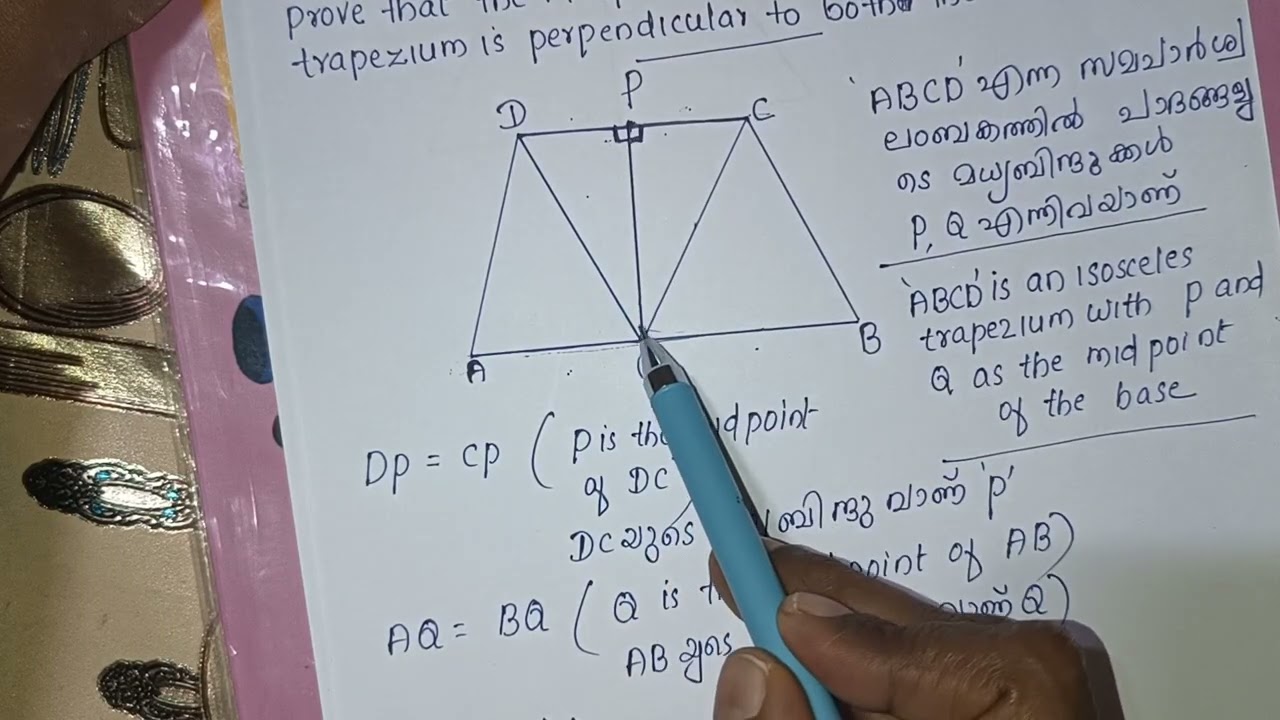 prove that the
trapezium is perpendicular to both
P
D
C
A
B
'ABCD' എന്ന സമപാർശ്വ
ലംബകത്തിൽ പാദങ്ങളു
ടെ മധ്യബിന്ദുക്കൾ
P, Q എന്നിവയാണ്
'ABCD' is an isosceles
trapezium with P and
Q as the midpoint
of the base
DP = CP ( P is the midpoint
of DC
DC യുടെ ബിന്ദുവാണ് 'P'
AQ = BQ ( Q is point of AB)
AB യുടെ Q)